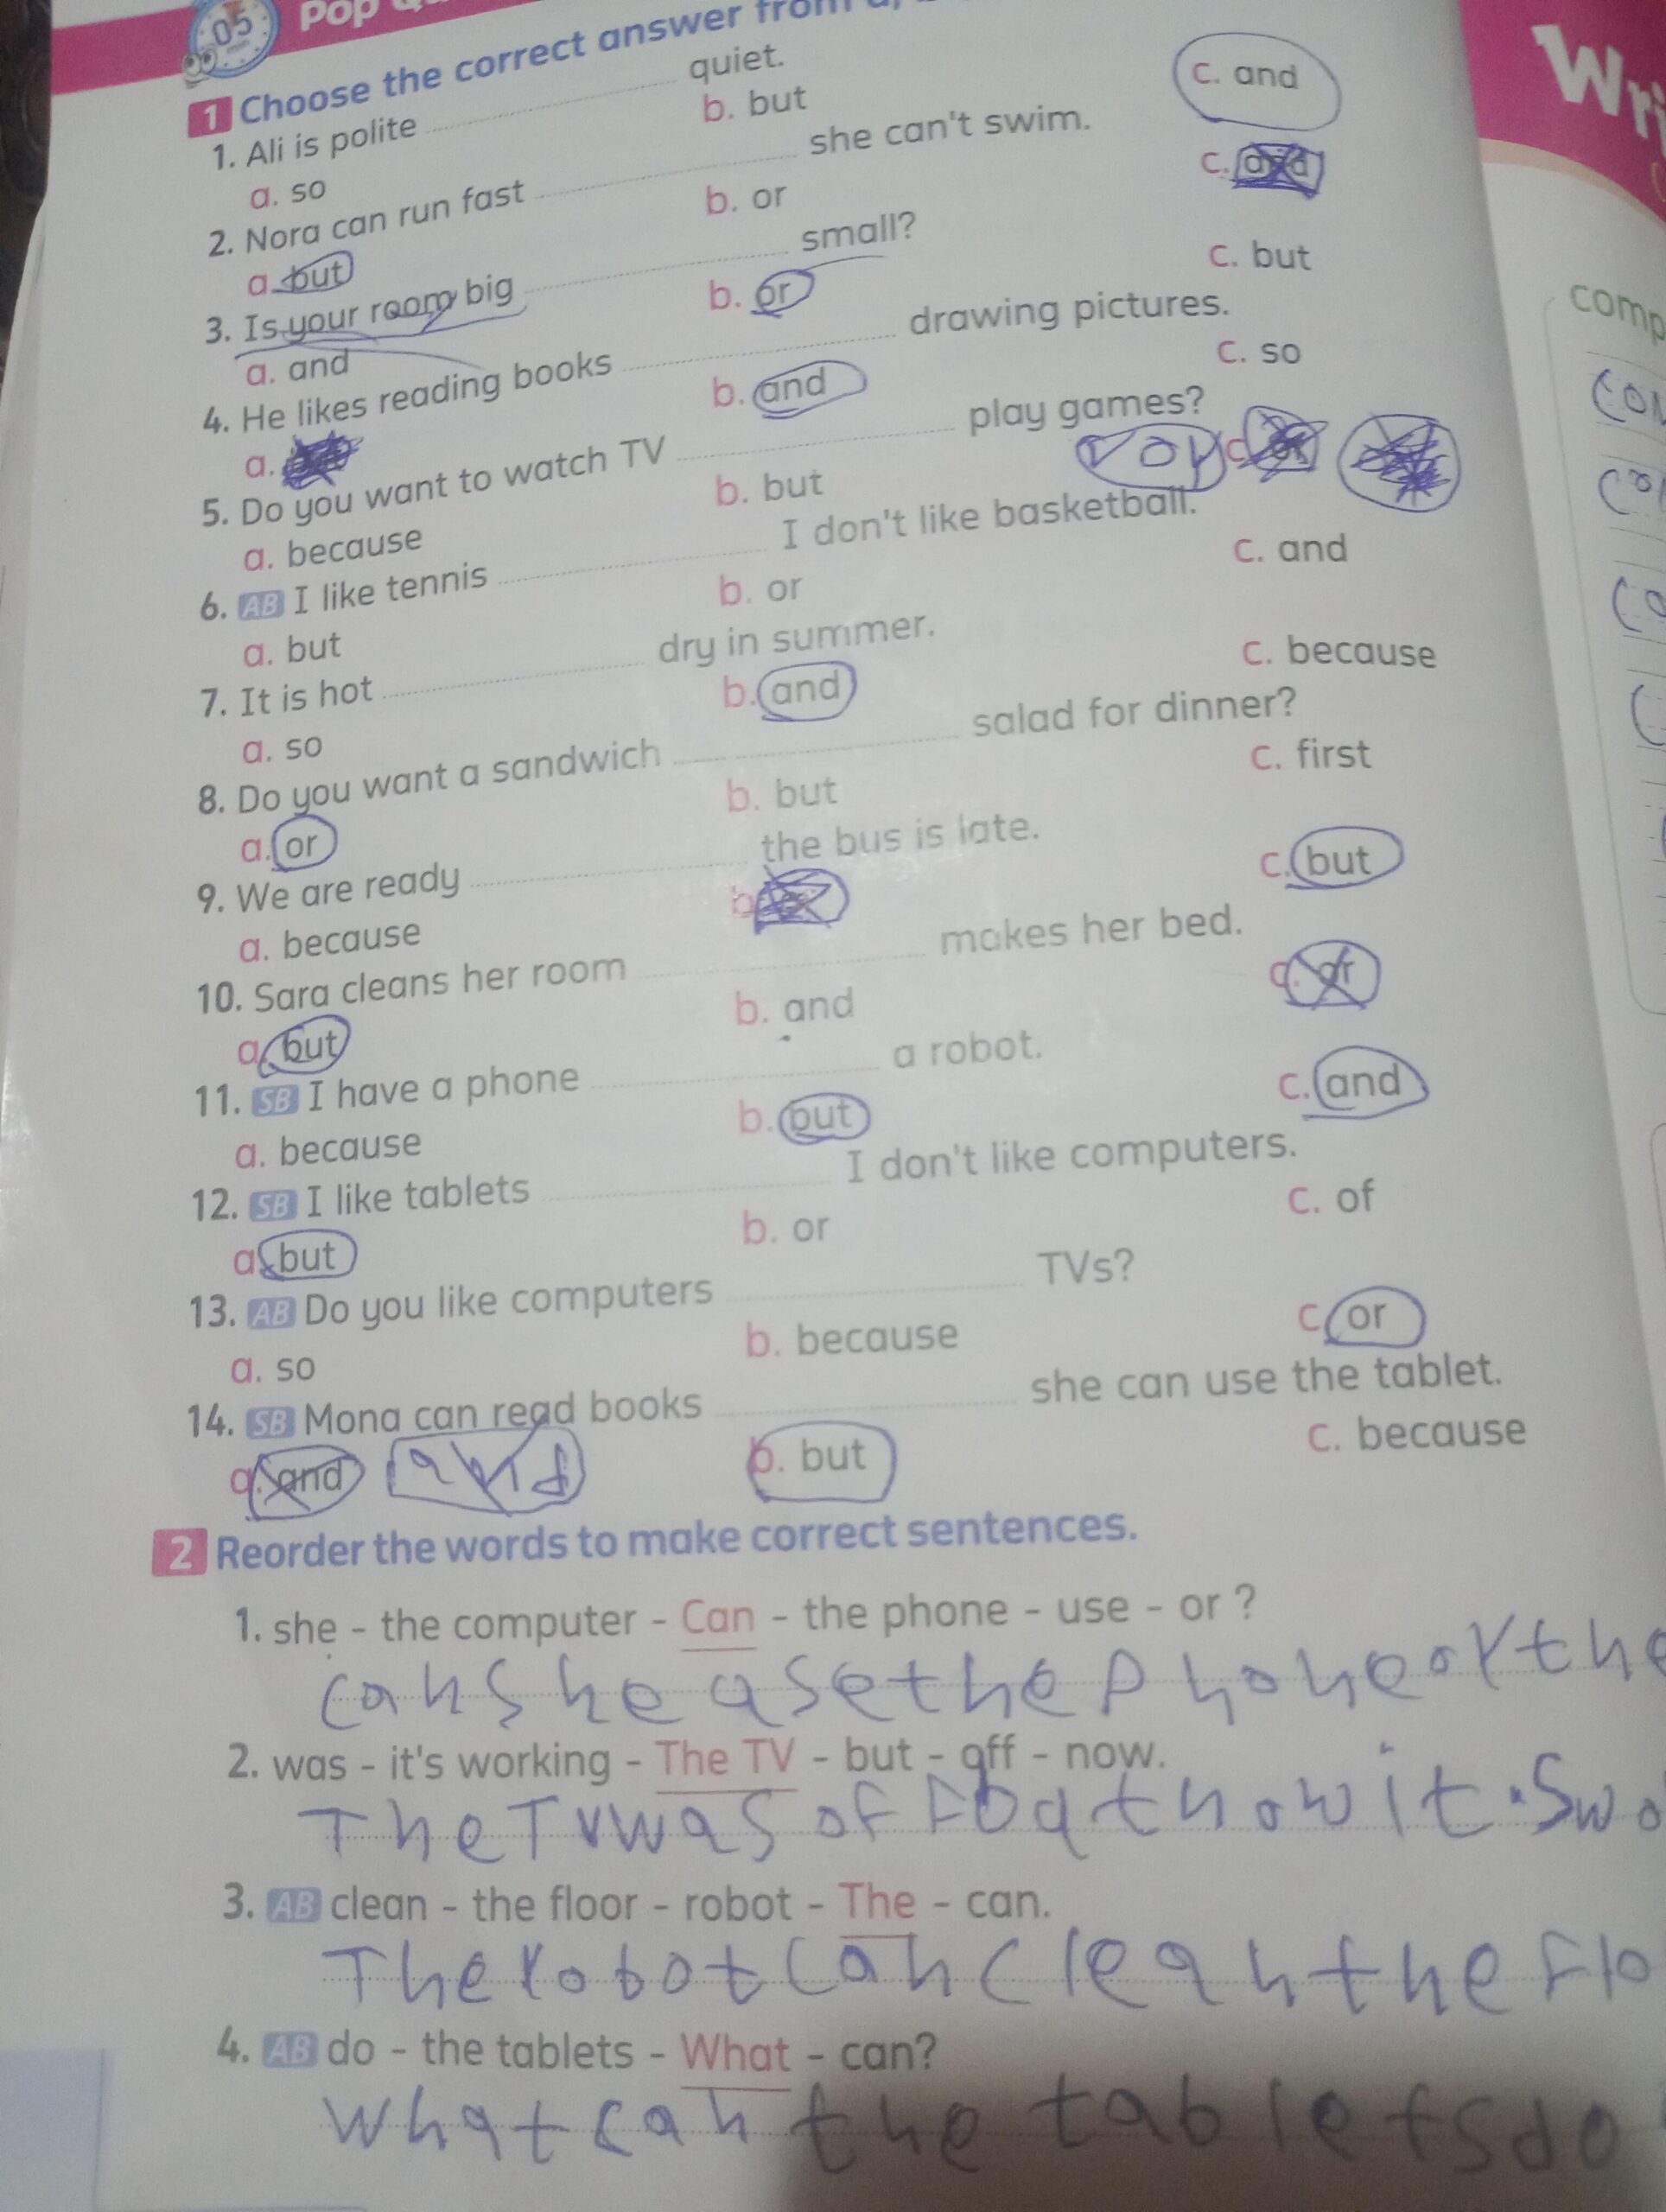 05
min
Pop
1 Choose the correct answer from a,
1. Ali is polite quiet.
a. so b. but c. and
2. Nora can run fast she can't swim.
a. but b. or c. and
3. Is your room big small?
a. and b. or c. but
4. He likes reading books drawing pictures.
a. b. and c. so
5. Do you want to watch TV play games?
a. because b. but or c. or
6. AB I like tennis I don't like basketball.
a. but b. or c. and
7. It is hot dry in summer.
a. so b. and c. because
8. Do you want a sandwich salad for dinner?
a. or b. but c. first
9. We are ready the bus is late.
a. because b. c. but
10. Sara cleans her room makes her bed.
a. but b. and c. or
11. SB I have a phone a robot.
a. because b. but c. and
12. SB I like tablets I don't like computers.
a. but b. or c. of
13. AB Do you like computers TVs?
a. so b. because c. or
14. SB Mona can read books she can use the tablet.
a. and and b. but c. because
2 Reorder the words to make correct sentences.
1. she - the computer - Can - the phone - use - or ?
can she use the phone or the
2. was - it's working - The TV - but - off - now.
The Tv was off but now it's wo
3. AB clean - the floor - robot - The - can.
The robot can clean the flo
4. AB do - the tablets - What - can?
what can the tablets do
Wri
comp